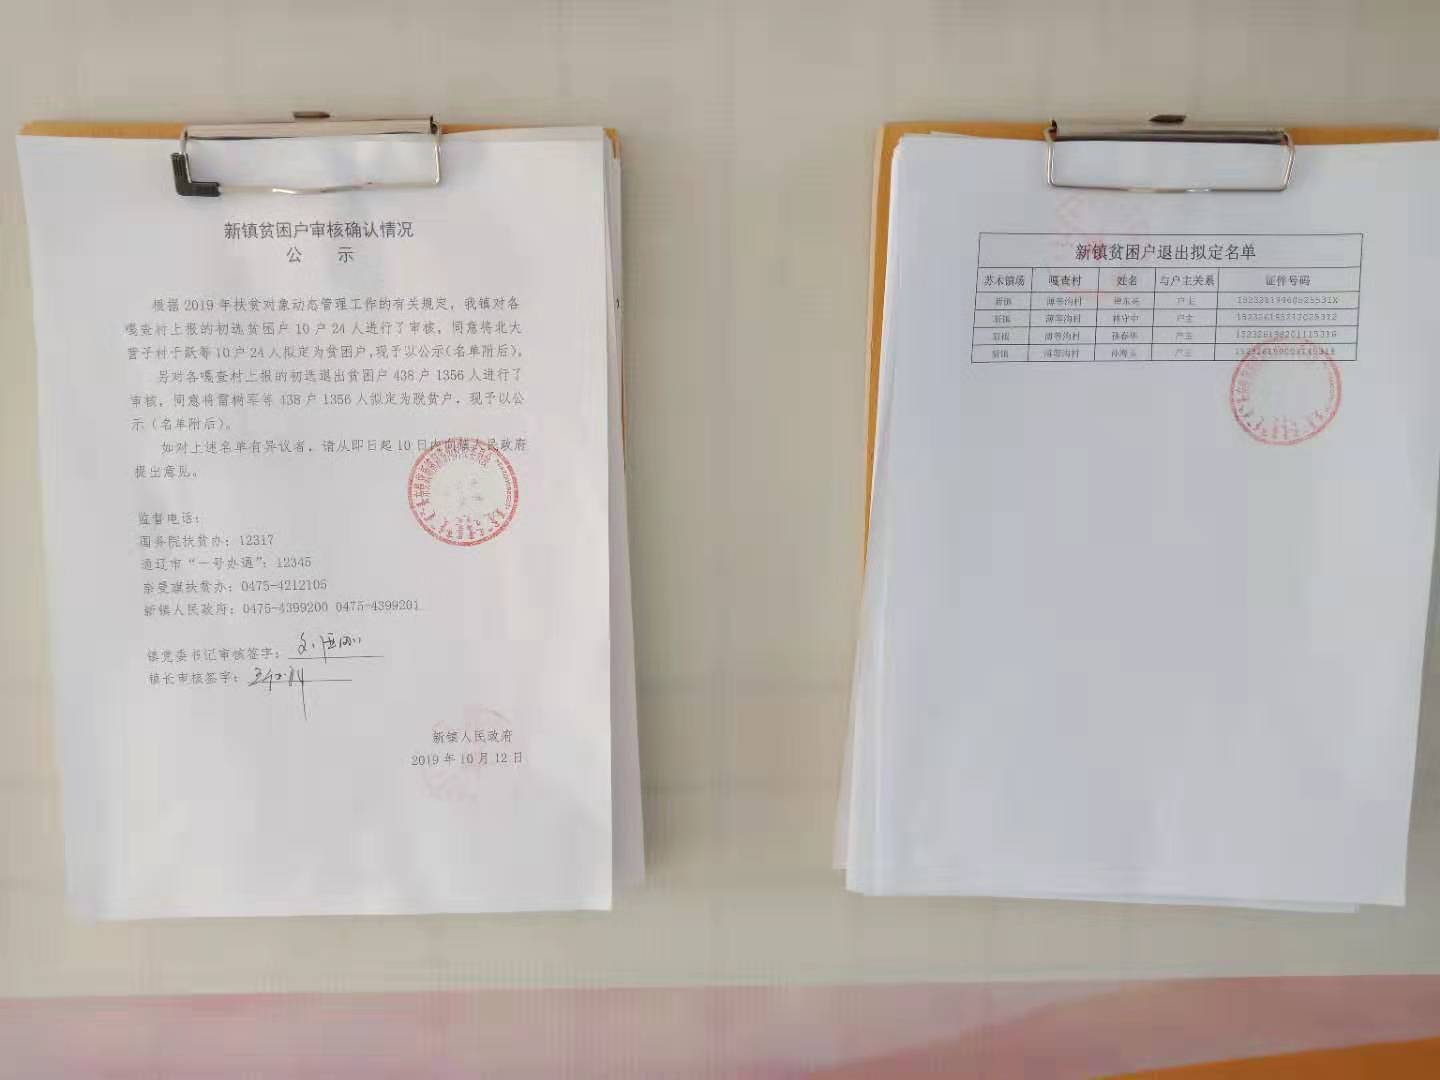 新镇贫困户审核确认情况
公 示
根据2019年扶贫对象动态管理工作的有关规定，我镇对各
嘎查村上报的初选贫困户10户24人进行了审核，同意将北大
营子村于跃等10户24人拟定为贫困户，现予以公示（名单附后）。
另对各嘎查村上报的初选退出贫困户438户1356人进行了
审核，同意将雷树军等438户1356人拟定为脱贫户，现予以公
示（名单附后）。
如对上述名单有异议者，请从即日起10日内向镇人民政府
提出意见。
监督电话：
国务院扶贫办：12317
通辽市“一号办通”：12345
奈曼旗扶贫办：0475-4212105
新镇人民政府：0475-4399200 0475-4399201
镇党委书记审核签字：
镇长审核签字：
新镇人民政府
2019年10月12日
新镇贫困户退出拟定名单
苏木镇场 嘎查村 姓名 与户主关系 证件号码
新镇 薄等沟村 户主
新镇 薄等沟村 户主
新镇 薄等沟村 户主
新镇 薄等沟村 户主